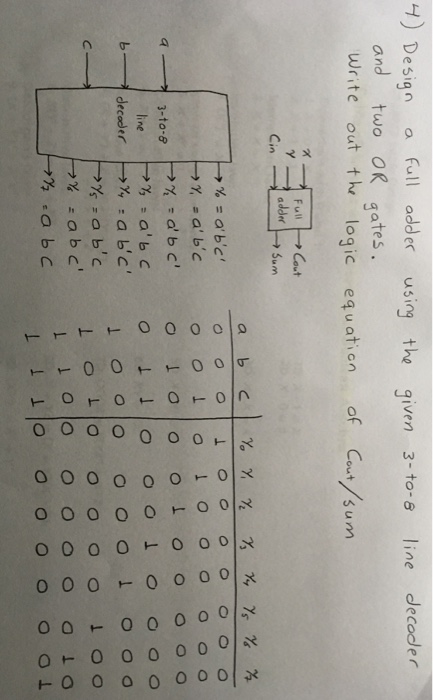 4) Design a full adder using the given 3-to-8 line decoder
and two OR gates.
Write out the logic equation of Cout/sum
x
y
Cin
Full
adder
Cout
Sum
a
b
c
3-to-8
line
decoder
Y0 = a'b'c'
Y1 = a'b'c
Y2 = a'b c'
Y3 = a'b c
Y4 = a b'c'
Y5 = a b'c
Y6 = a b c'
Y7 = a b c
a b c Y0 Y1 Y2 Y3 Y4 Y5 Y6 Y7
0 0 0 1 0 0 0 0 0 0 0
0 0 1 0 1 0 0 0 0 0 0
0 1 0 0 0 1 0 0 0 0 0
0 1 1 0 0 0 1 0 0 0 0
1 0 0 0 0 0 0 1 0 0 0
1 0 1 0 0 0 0 0 1 0 0
1 1 0 0 0 0 0 0 0 1 0
1 1 1 0 0 0 0 0 0 0 1